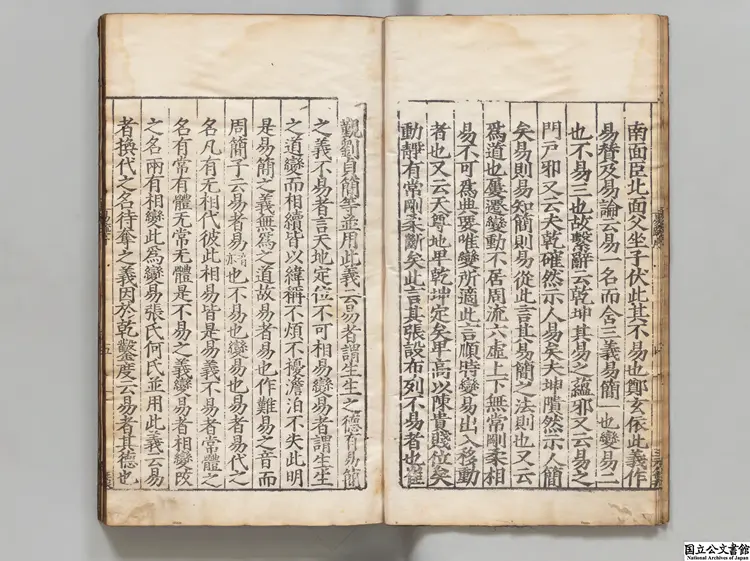 南面臣北面父坐子伏此其不易也鄭玄依此義作
易賛及易論云易一名而含三義易簡一也變易二
也不易三也故繫辭云乾坤其易之蘊邪又云易之
門戸邪又云夫乾確然示人易矣夫坤隤然示人簡
矣易則易知簡則易從此言其易簡之法則也又云
爲道也屢遷變動不居周流六虛上下無常剛柔相
易不可爲典要唯變所適此言順時變易出入移動
者也又云天尊地卑乾坤定矣卑高以陳貴賤位矣
動靜有常剛柔斷矣此言其張設布列不易者也崔
覲劉貞簡等並用此義云易者謂生生之德有易簡
之義不易者言天地定位不可相易變易者謂生生
之道變而相續皆以緯稱不煩不擾澹泊不失此明
是易簡之義無爲之道故易者易也作難易之音而
周簡子云易者易音亦也不易也變易也易者易代之
名凡有无相代彼此相易皆是易義不易者常體之
名有常有體无常无體是不易之義變易者相變改
之名兩有相變此爲變易張氏何氏並用此義云易
者換代之名待奪之義因於乾鑿度云易者其德也
五
国立公文書館
National Archives of Japan